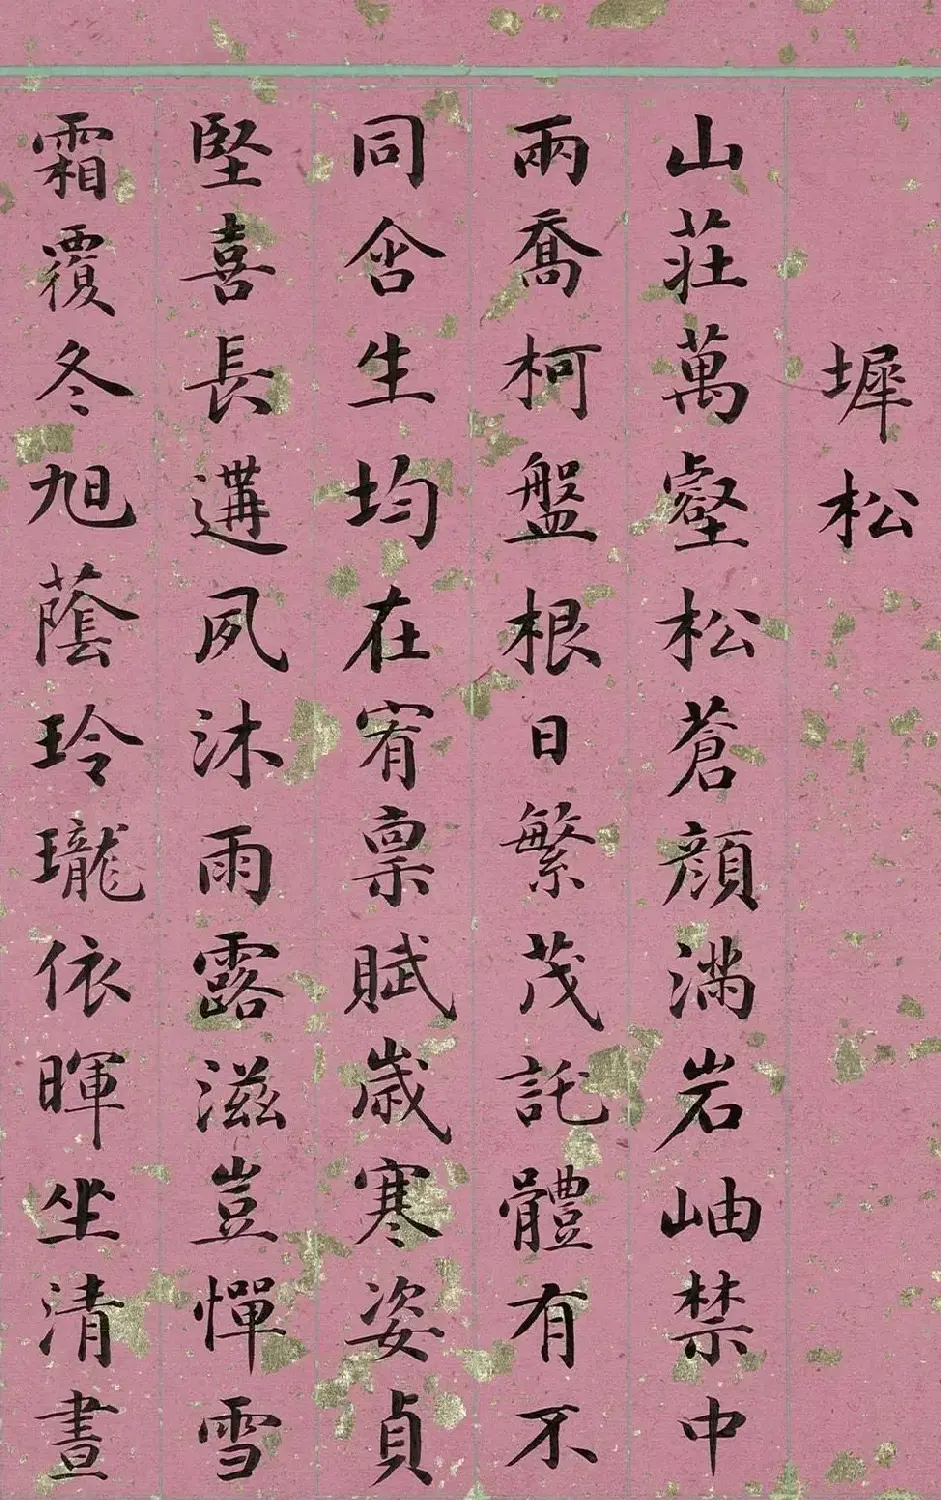 墀松
山莊萬壑松蒼顔滿岩岫禁中
兩喬柯盤根日繁茂託體有不
同含生均在宥禀賦歲寒姿貞
堅喜長遘夙沐雨露滋豈憚雪
霜覆冬旭蔭玲瓏依暉坐清晝